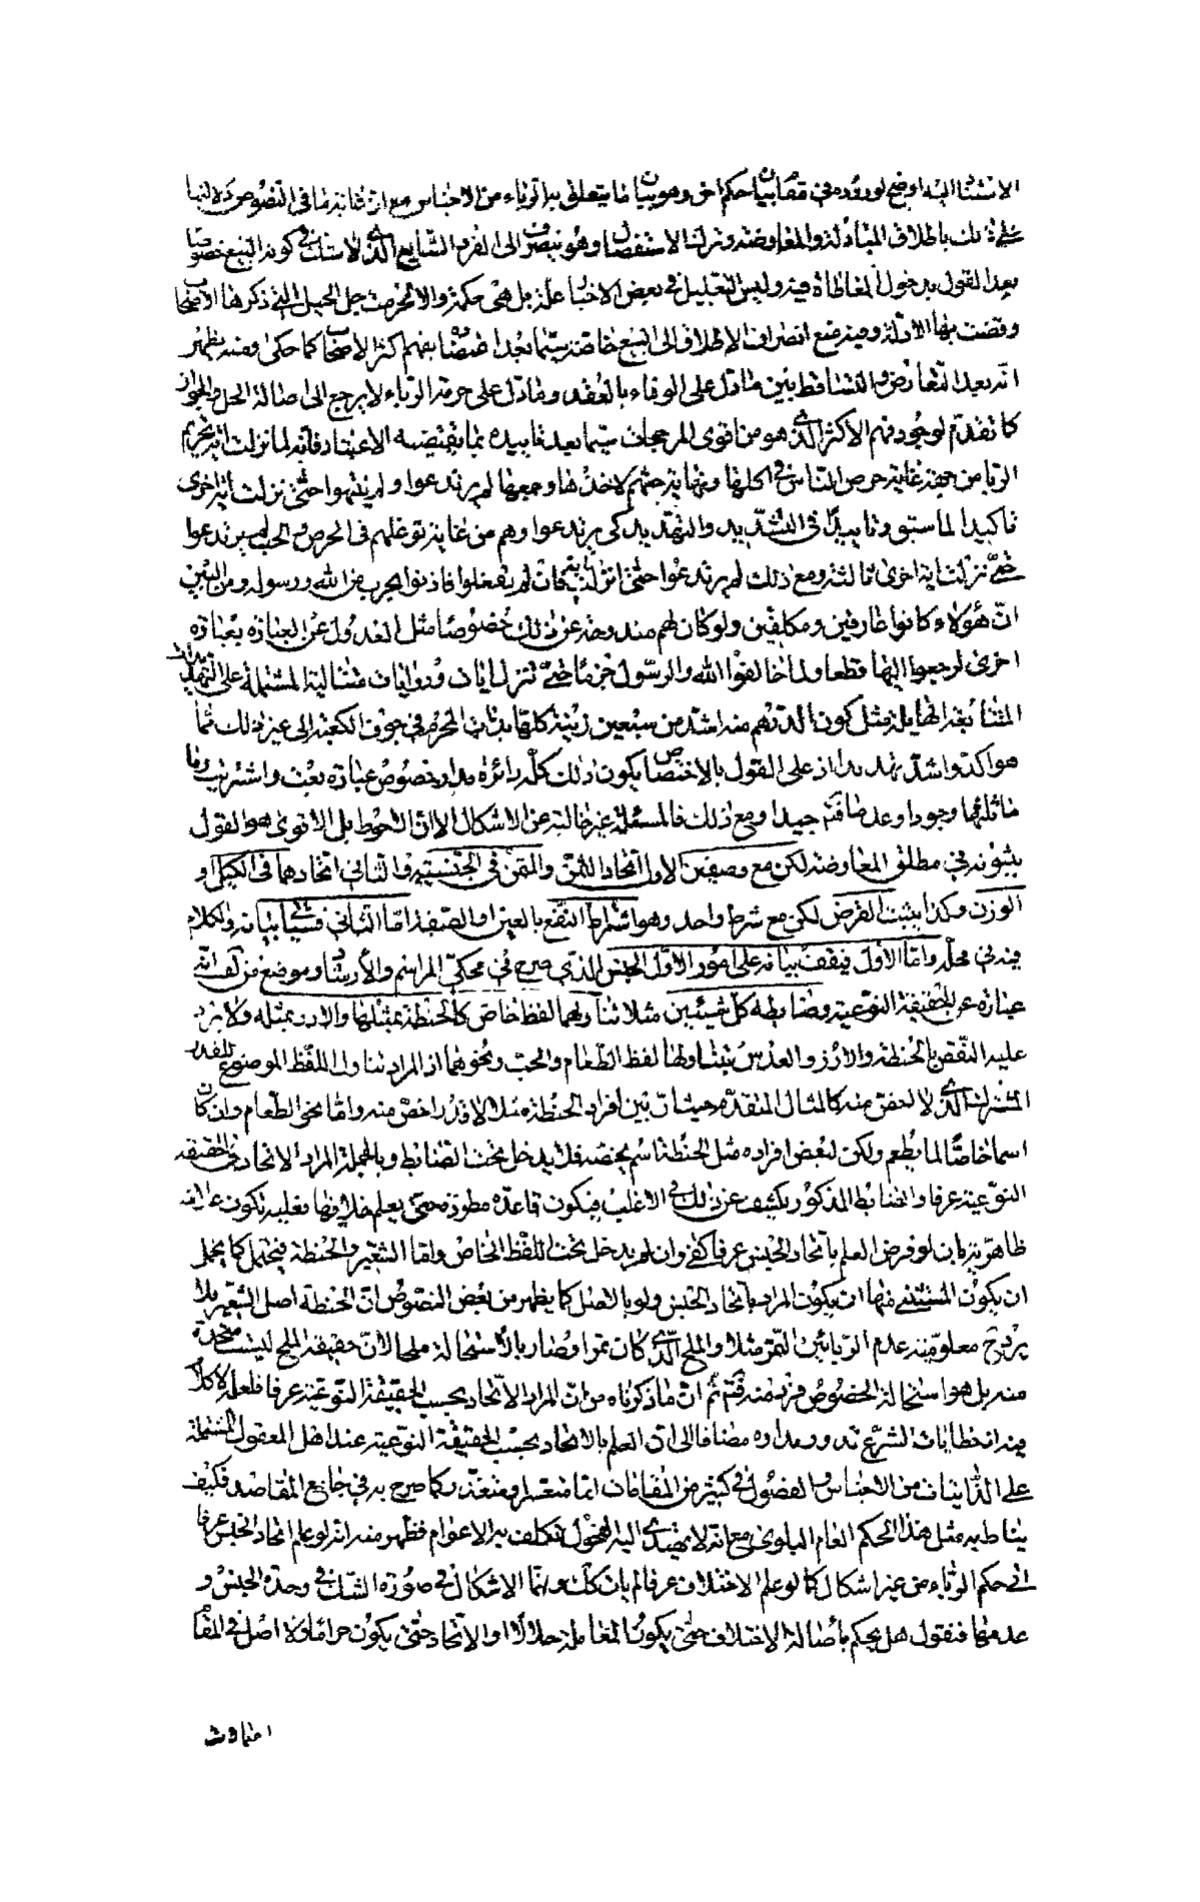 الاستثناء اليه اوضح لوروده فى مقام بيان حكم اخر وهو بيان ما يتعلق به الرباء من الاجناس مع ان غاية ما فى النصوص دلالتها
على ذلك باطلاق المبادلة والمعاوضة وترك الاستفصال وهو ينصرف الى الفرد الشايع الذى لا شك فى كونه البيع خصوصا
بعد القول بدخول المعاطاة فيه وليس التعليل فى بعض الاخبار علة بل هى حكمة والا لحرمت جل الحيل التى ذكرها الاصحاب
وقضت بها الادلة وفيه منع انصراف الاطلاق الى البيع خاصة سيما بعد اعتضاده بفهم اكثر الاصحاب كما حكى ومنه يظهر
انه بعد التعارض والتساقط بين ما دل على الوفاء بالعقد وما دل على حرمة الرباء لا يرجع الى اصالة الحل والجواز
كما تقدم لوجود فهم الاكثر الذى هو من اقوى المرجحات سيما بعد تاييده بما يقتضيه الاعتبار فانه لما نزلت اية تحريم
الربا من جهة غاية حرص الناس فى اكلها ونهاية حبهم لاخذها وجمعها لم يرتدعوا ولم ينتهوا حتى نزلت اية اخرى
تاكيدا لما سبق وتاييدا فى التشديد والتهديد كى يرتدعوا وهم من غاية توغلهم فى الحرص والحب لم يرتدعوا
حتى نزلت اية اخرى ثالثة ومع ذلك لم يرتدعوا حتى انزلت اية فان لم تفعلوا فاذنوا بحرب من الله ورسوله ومن البين
ان هؤلاء كانوا عارفين ومكلفين ولو كان لهم مندوحة عن ذلك خصوصا مثل العدول عن العبارة بعبارة
اخرى لرجعوا اليها قطعا ولما خالفوا الله والرسول جزما حتى تنزل ايات وروايات متتالية المشتملة على التهديدات
المتتابعة الهايلة مثل كون الدرهم منه اشد من سبعين زنية كلها بذات المحرم فى جوف الكعبة الى غير ذلك مما
هو اكد واشد تهديدا اذ على القول بالاختصاص يكون ذلك كله دائرة مدار خصوص عبارة بعت واشتريت وما
ماثلهما وجودا وعدما فتم جيدا ومع ذلك فالمسئلة غير خالية عن الاشكال الا ان الاحوط بل الاقوى هو القول
بثبوته فى مطلق المعاوضة لكن مع وصفين الاول اتحاد الثمن والمثمن فى الجنسية والثانى اتحادهما فى الكيل او
الوزن وكذا يثبت القرض لكن مع شرط واحد وهو اشتراط النفع بالعين او الصفة اما الثانى فسيأتى بيانه والكلام
فيه فى محله واما الاول فيقف بيانه على امور الاول الجنس الذى صرح فى محكى المراسم والارشاد وموضع من كف انه
عبارة عن الحقيقة النوعية وضابطه كل شيئين مثلا تناولهما لفظ خاص كالحنطة بمثلها والارز بمثله ولا يرد
عليه النقض بالحنطة والارز والعدس يتناولها لفظ الطعام والحب ونحوهما اذ المراد تناول اللفظ الموضوع للقدر
المشترك الذى لا اخص منه كالمثال المتقدم حيث ان بين افراد الحنطة مثلا لا قدر اخص منه واما نحو الطعام وان كان
اسما خاصا لما يطعم ولكن لبعض افراده مثل الحنطة اسم يخصه فلا يدخل تحت الضابط وبالجملة المراد الاتحاد فى الحقيقة
النوعية عرفا والضابط المذكور يكشف عن ذلك فى الاغلب فيكون قاعدة مطردة حتى يعلم خلافها فعليه تكون علامة
ظاهرية بان لو فرض العلم باتحاد الجنس عرفا كفى وان لم يدخل تحت اللفظ الخاص واما الشعير والحنطة فيحتمل كما يحمل
ان يكون المستثنى منها ان يكون المراد باتحاد الجنس ولو بالاصل كما يظهر من بعض النصوص ان الحنطة اصل الشعير بلا
يرد ح معلومية عدم الربا بين التمر مثلا والملح الذى كان تمرا وصار بالاستحالة ملحا لان حقيقة الملح ليست متحدة
منه بل هو استحالة الخصوص فرد منه فتم ثم ان ما ذكرناه من ان المراد الاتحاد بحسب الحقيقة النوعية عرفا فلعله لا كلام
فيه اذ خطابات الشرع تدور مداره مضافا الى ان العلم بالاتحاد بحسب الحقيقة النوعية عند اهل المعقول المشتملة
على الذاتيات من الاجناس والفصول فى كثير من المقامات اما متعسر او متعذر كما صرح به فى جامع المقاصد فكيف
يناط به مثل هذا الحكم العام البلوى مع انه لا يهتدى اليه الفحول فتكلف به الاعوام فظهر منه انه لو علم اتحاد الجنس عرفا
فى حكم الرباء من غير اشكال كما لو علم الاختلاف عرفا لم يات كك وانما الاشكال فى صورة الشك فى وحدة الجنس و
عدمها فنقول هل يحكم باصالة الاختلاف حتى يكون المعاملة حلالا او الاتحاد حتى يكون حراما او لا اصل فى المقام